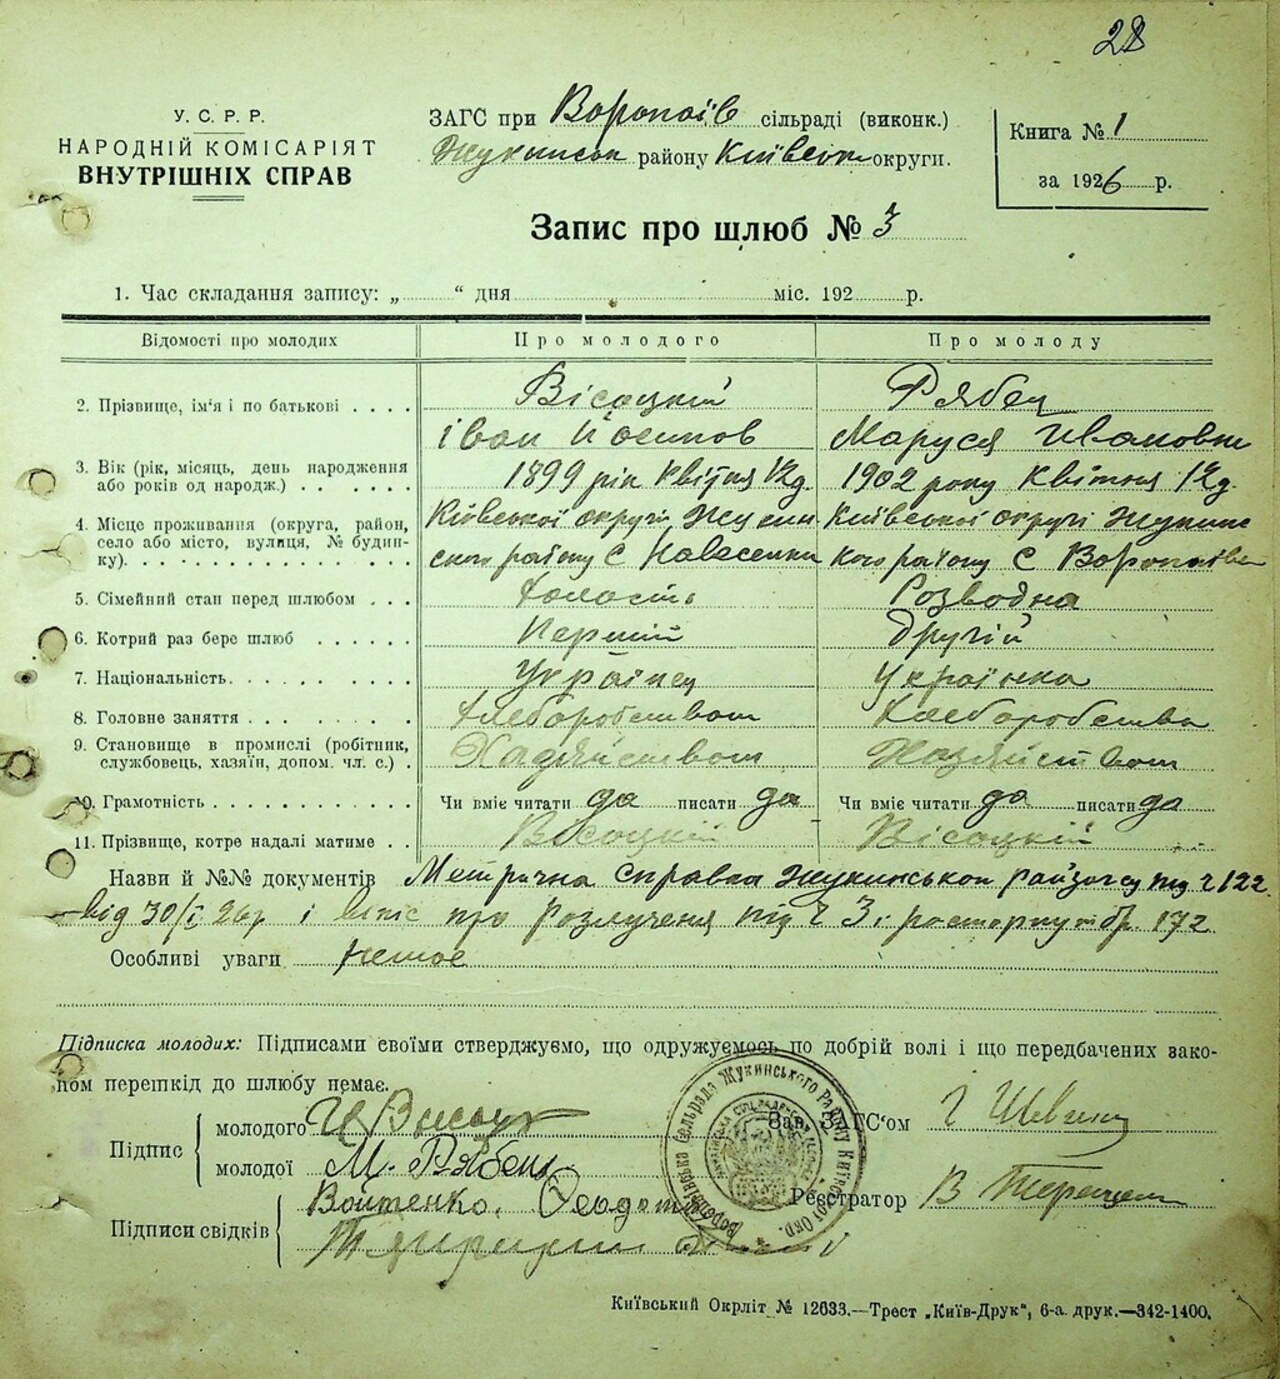 28
У. С. Р. Р.
НАРОДНІЙ КОМІСАРІЯТ
ВНУТРІШНІХ СПРАВ
ЗАГС при Воропаїв сільраді (виконк.)
Жукинськ району Київськ округи.
Книга № 1
за 1926 р.
Запис про шлюб № 3
1. Час складання запису: „ “ дня міс. 192 р.
Відомості про молодих
Про молодого
Про молоду
2. Прізвище, ім'я і по батькові
Вісоцкий
Рябец
Іван Йосипов
Маруся Ивановн
3. Вік (рік, місяць, день народження або років од народж.)
1899 рік Квітня 12д.
1902 року Квітня 12д.
4. Місце проживання (округа, район, село або місто, вулиця, № будинку).
Київської округи Жукин
ского району С
Київської округи Жукинс
кого району С Воропаїв
5. Сімейний стан перед шлюбом
Холости
Розводна
6. Котрий раз бере шлюб
Перший
Другій
7. Національність
Українец
Українка
8. Головне заняття
Хлеборобством
Хлеборобства
9. Становище в промислі (робітник, службовець, хазяїн, допом. чл. с.)
Хазяйством
Хазяйством
10. Грамотність
Чи вміє читати да писати да
Чи вміє читати да писати да
11. Прізвище, котре надалі матиме
Вісоцкій
Вісоцкій
Назви й №№ документів Метрична справка Жукинської Райзагсу під ч 122
від 30/I 26р і впіс про розлучення під ч 3 172
Особливі уваги немає
Підписка молодих: Підписами своїми стверджуємо, що одружуємось по добрій волі і що передбачених зако-
ном перешкід до шлюбу немає.
Підпис
молодого И Висоцк
молодої М. Рябець
Підписи свідків
Войтенко. Феодот
Зав. ЗАГС'ом Г Шевч
Реєстратор В Терещен
Воропаївська Сільрада Жукинського Району Київської Окр.
Київський Окрліт № 12633.—Трест „Київ-Друк“, 6-а друк.—342-1400.